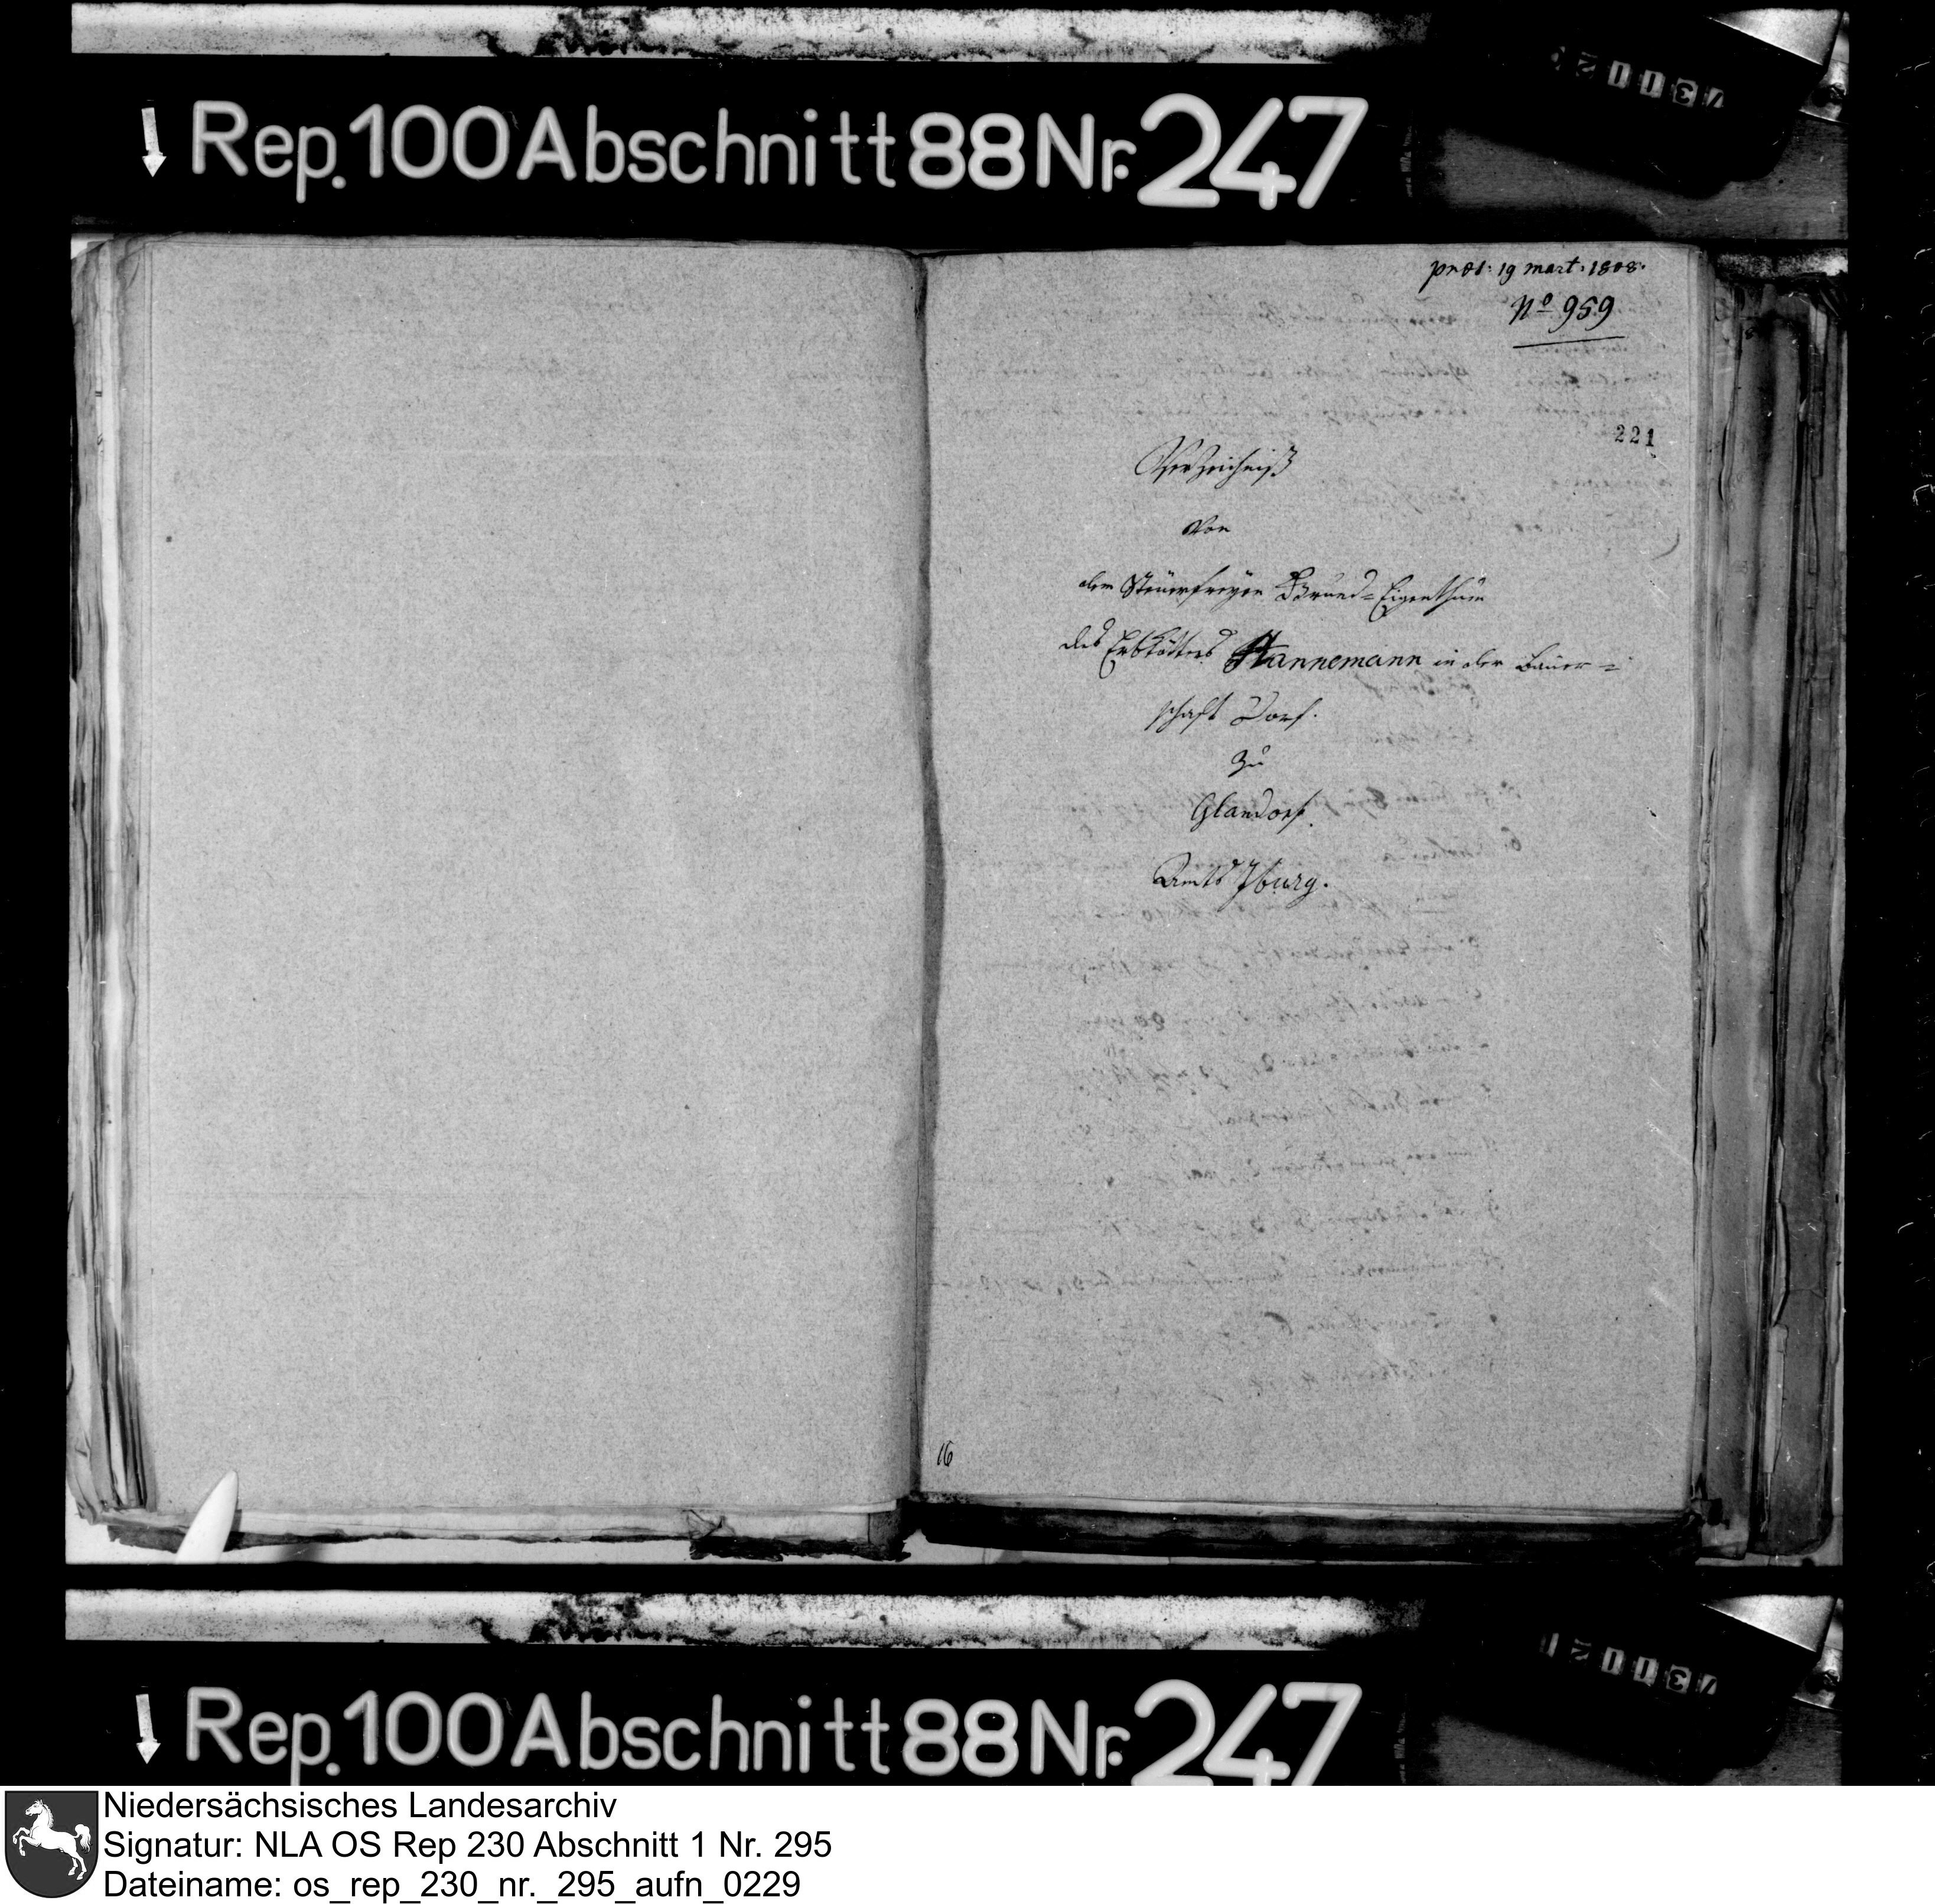 Rep. 100 Abschnitt 88 Nr. 247
præs: 19 mart: 1808.
No 959
221
Verzeichniß
Von
dem Steuerfreyen Grund=Eigenthum
des Erbkötters Hannemann in der Bauer=
schaft Dorf.
zu
Glandorf.
Amts Iburg.
16
Rep. 100 Abschnitt 88 Nr. 247
Niedersächsisches Landesarchiv
Signatur: NLA OS Rep 230 Abschnitt 1 Nr. 295
Dateiname: os_rep_230_nr._295_aufn_0229